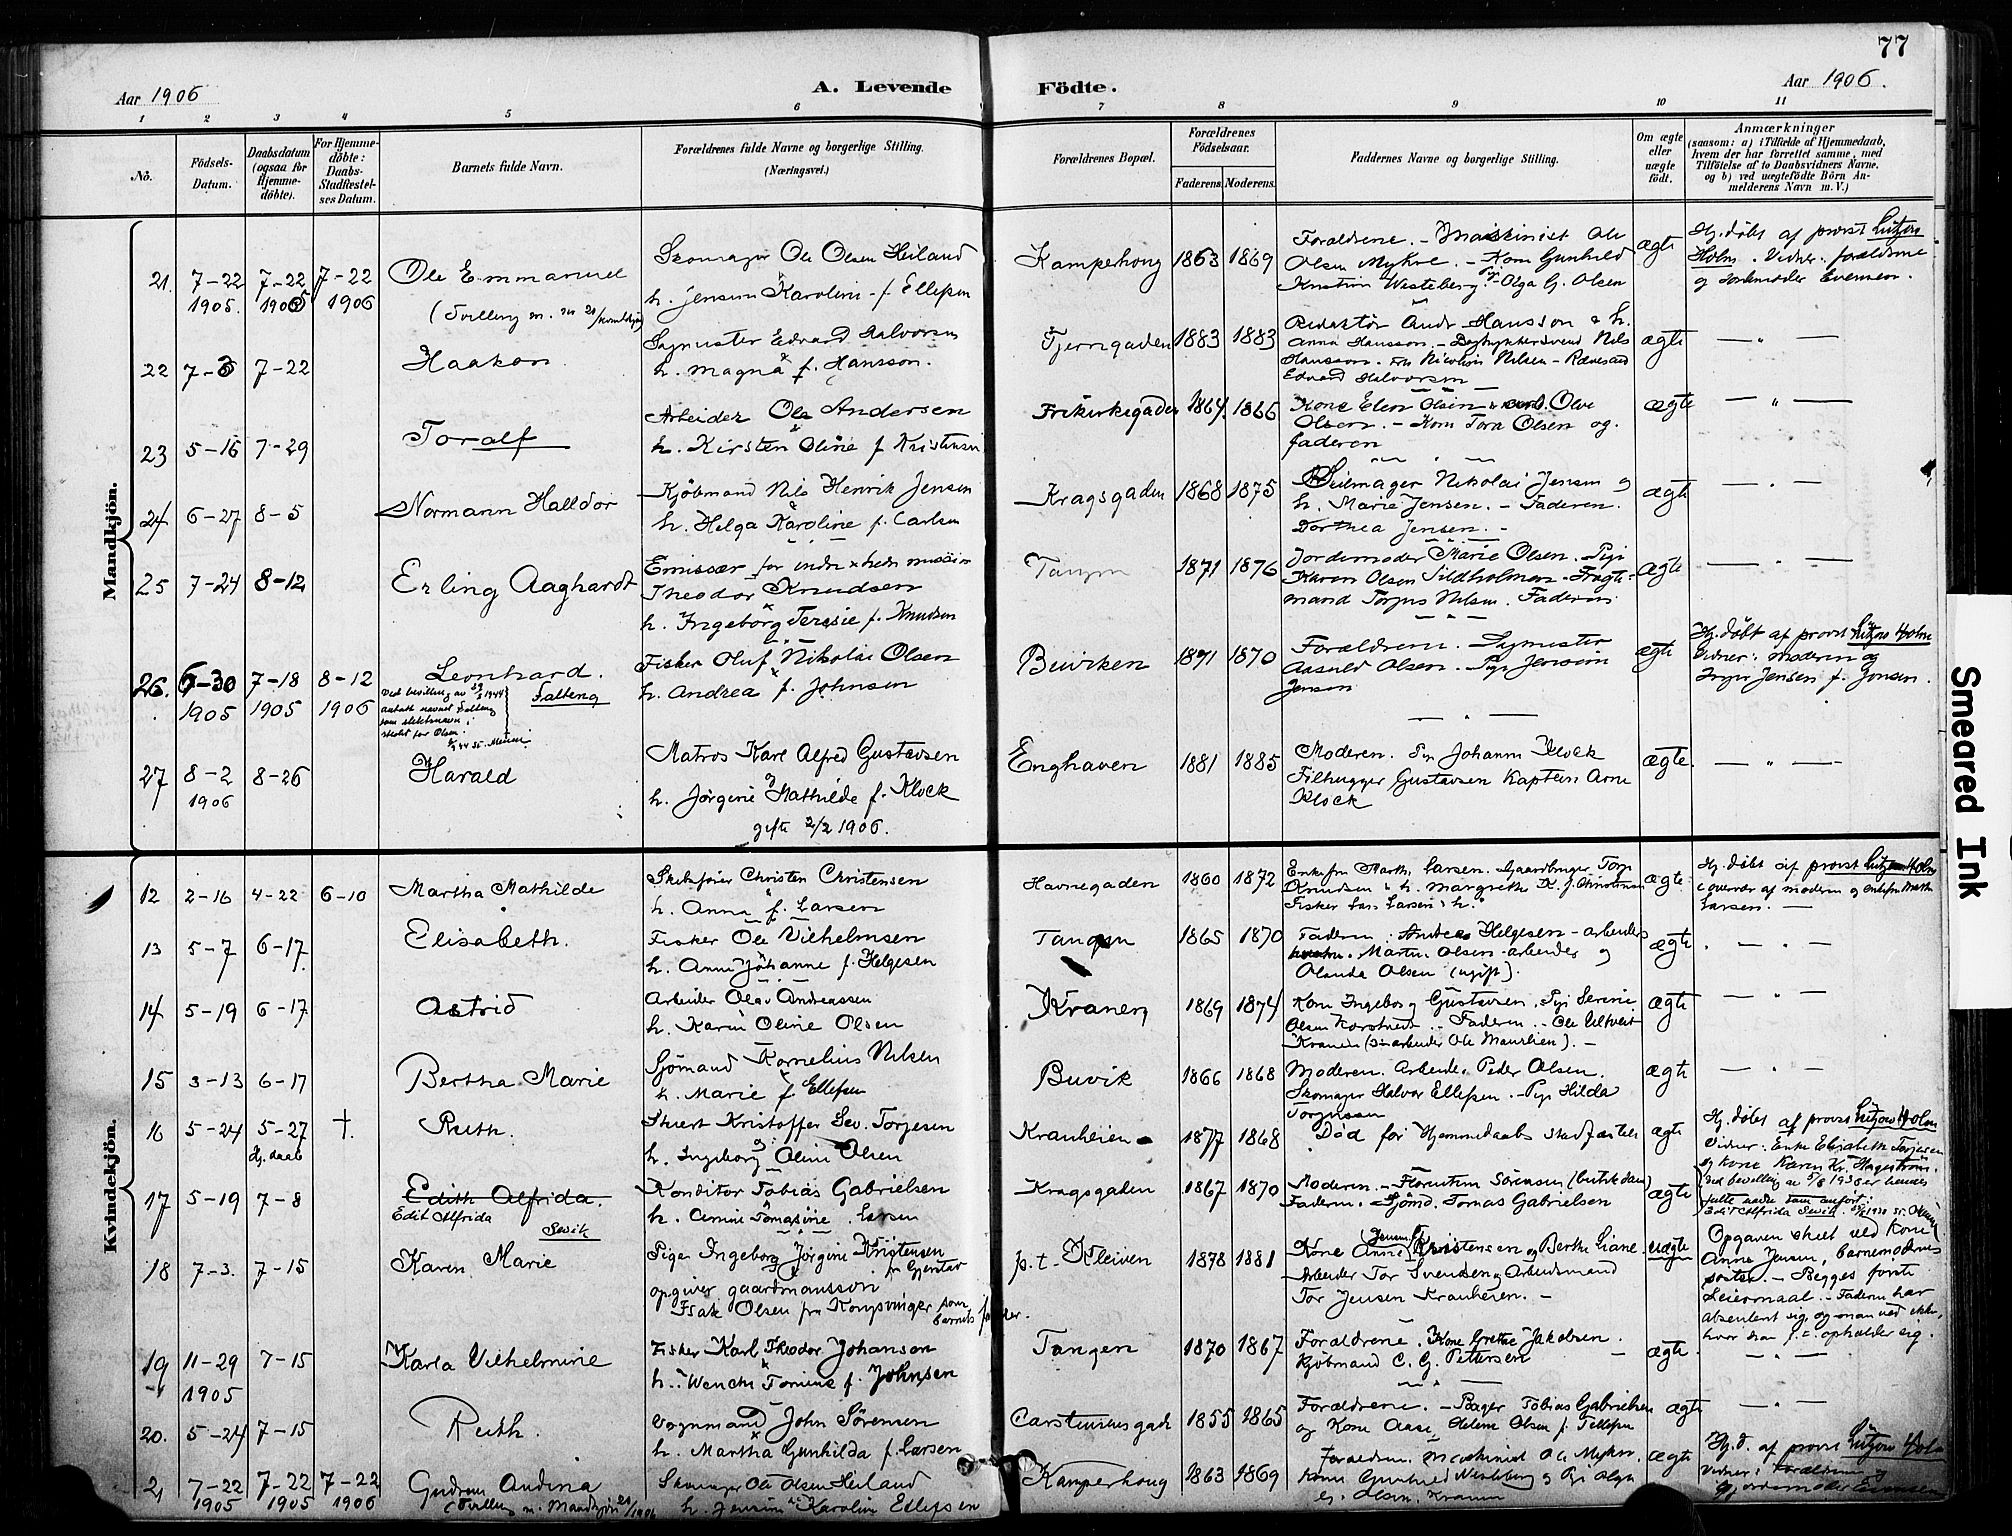 77
Aar 1906
A. Levende
Födte.
Aar 1906.
1 2 3 4 5 6 7 8 9 10 11
No.
Födsels-
Datum.
Daabsdatum
(ogsaa for
Hjemme-
döbte).
For Hjemme-
döbte:
Daabs-
Stadfæstel-
ses Datum.
Barnets fulde Navn.
Forældrenes fulde Navne og borgerlige Stilling.
(Næringsvei.)
Forældrenes Bopæl.
Forældrenes
Födselsaar.
Faderens. Moderens.
Faddernes Navne og borgerlig Stilling.
Om ægte
eller
uægte
födt.
Anmærkninger
(saasom: a) i Tilfælde af Hjemmedaab,
hvem der har forrettet samme, med
Tilföielse af to Daabsvidners Navne,
og b) ved uægtefödte Börn An-
melderens Navn m. V.)
Mandkjön.
21. 7-22 1905. 7-22 1905 7-22 1906
Ole Emmanuel
Skomager Ole Olsen Heiland
h. Jensine Karoline f. Ellefsen
Kamperhoug 1863 1869
Forældrene. - Maskinist Ole
Olsen Mykre. - Kone Gunhild
Kristine Westeberg. Olga G. Olsen
ægte
Hj. døbt af provst Lützow
Holm. Vidner. forældrene
og jordemoder Evensen.
22 7-3 7-22
Haakon
Edvard Halvorsen
h. Magna f. Hansson.
Tjerngaden 1883 1883
Redaktør Andr. Hansson & h.
Anna Hansson. - Nils
Hansson. Nicoline Nilsen -
Edvard Halvorsen
ægte
23 5-16 7-29
Toralf
Arbeider Ole Andersen
h. Kirsten Oline f. Kristensen
Frikirkegaden 1864. 1866
Kone Elen Olsen Olve
Olsen. - Kone Tora Olsen og
faderen
ægte
24 6-27 8-5
Normann Halldor
Kjøbmand Nils Henrik Jensen
h. Helga Karoline f. Carlsen
Kragsgaden 1868 1875
Seilmager Nikolai Jensen og
h. Marie Jensen. - Faderen.
Dorthea Jensen. -
ægte
25 7-24 8-12
Erling Aaghardt
Emissær for indre & hedn. mission
Theodor Knudsen
h. Ingeborg Teresie f. Knudsen
Tangen 1871 1876
Jordemoder Marie Olsen. Pige
Karen Olsen Sildholmen. Fragte-
mand Torjus Nilsen. Faderen
ægte
26. 6-30 1905 7-18 1905 8-12 1906
Leonhard.
Falteng
Ved bevilling av 1944
antatt navnet Falteng
som slektsnavn
istedet for Olsen.
Fisker Oluf Nikolai Olsen
h. Andrea f. Johnsen
Buviken 1871 1870
Forældrene.
Aasuld Olsen. Pige
Jensen
ægte
Hj. døbt af provst Lützow Holm
Vidner: moderen og
Inger Jensen f. Jonsen.
27 8-2 1906 8-26
Harald
Matros Karl Alfred Gustavsen
h. Jørgine Mathilde f. Klock
gifte 2/2 1906.
Enghaven 1881 1885
Moderen. Pige Johanne Klock
Filhugger Gustavsen Kaptein Arne
Klock
ægte.
Kvindekjön.
12 2-16 4-22 6-10
Martha Mathilde
Skibsfører Christen Christensen
h. Anna f. Larsen
Havnegaden 1860 1872
Enkefru Marth. Larsen. Gaardbruger Torj.
Knudsen & h. Margrethe K. f.
Fisker Lars Larsen & h.
ægte
Hj. døbt af provst Lützow Holm
i overvær af moderen og enkefru Marth.
Larsen.
13 5-7 6-17.
Elisabeth.
Fisker Ole Vilhelmsen
h. Anne Johanne f. Helgesen
Tangen 1865 1870
Faderen. Helgesen - arbeider
Martin Olsen arbeider og
Olanda Olsen (ugift).
ægte
14 5-19 6-17
Astrid
Arbeider Olav Andreassen
h. Karin Oline Olsen
Kranen 1869 1874
Kone Ingeborg Gustavsen. Pige Serine
Olsen . - Faderen. - Ole Ultveit
Kranen (arbeider Ole Maurlien). -
ægte
15 3-13 6-17
Bertha Marie
Sjømand Kornelius Nilsen
h. Marie f. Ellefsen
Buvik 1866 1868
Moderen. Arbeider Peder Olsen.
Skomager Halvor Ellefsen. - Pige Hilda
Torjussen
ægte
16 5-24 5-27 Hj. daab †.
Ruth.
Stuert Kristoffer Sev. Torjesen
h. Ingeborg Oline Olsen
Kranheien 1877 1868
Død før Hjemmedaabs stadfæstelse
ægte
Hj. døbt af provst Lützow Holm
Vidner. Enke Elisabeth Torjesen
og kone Karen Kr. Hagestrøm.
17 5-19 7-8
Edith Alfrida.
Edit Alfrida
Sevik
Konditor Tobias Gabrielsen
h. Tomasine Larsen
Kragsgaden 1867 1870
Moderen. - Florentine Sørensen (butikdame)
Faderen. Sjømd. Tomas Gabrielsen
ægte
Ved bevilling av 8 1938 er hendes
fulle navn som anført:
Edit Alfrida Sevik.
18 7-3. 7-15
Karen Marie
Pige Ingeborg Jørgine Kristensen
fra Gjerstad
opgiver gaardmannssøn
Isak Olsen fra Kongsvinger som
barnets fader.
p.t. Kleiven 1878 1881
Kone Anne Kristensen og Berthe Liane.
Arbeider Tor Svendsen og Arbeidsmand
Tor Jensen Kranheien. -
uægte
Opgaven skeet ved Kone
Anne Jensen, barnemoderens
søster. - Begges første
Leiermaal. - Faderen har
absentert sig, og man ved ikke,
hvor han p.t. opholder sig.
19 11-29 1905 7-15
Karla Vilhelmine
Fisker Karl Theodor Johanson
h. Wenche Tomine f. Johnsen
Tangen 1870 1867
Forældrene. Kone Grethe Jakobsen.
Kjøbmand C. G. Pettersen
ægte
20. 5-24 7-15
Ruth.
Vognmand John Sørensen
h. Martha Gunhilda f. Larsen
Carstensensgade 1855 1865
Forældrene. - Bager Tobias Gabrielsen
og Kone Aase Helene Olsen f. Tellefsen
ægte
21 7-22 1905 7-22 1905 7-22 1906
Gudrun Andina
(Tvilling m. Mandkjøn 21/1906
Skomager Ole Olsen Heiland
h. Jensine Karoline Ellefsen
Kamperhoug 1863 1869
Forældrene. Maskinist Ole Mykre.
Kone Gunhild Westeberg og Pige Olga
G. Olsen. Kranen
ægte
Hj. d. af provst Lützow Holm
Vidner: Forældrene og
Gj. jordemoder Evensen
Smeared Ink